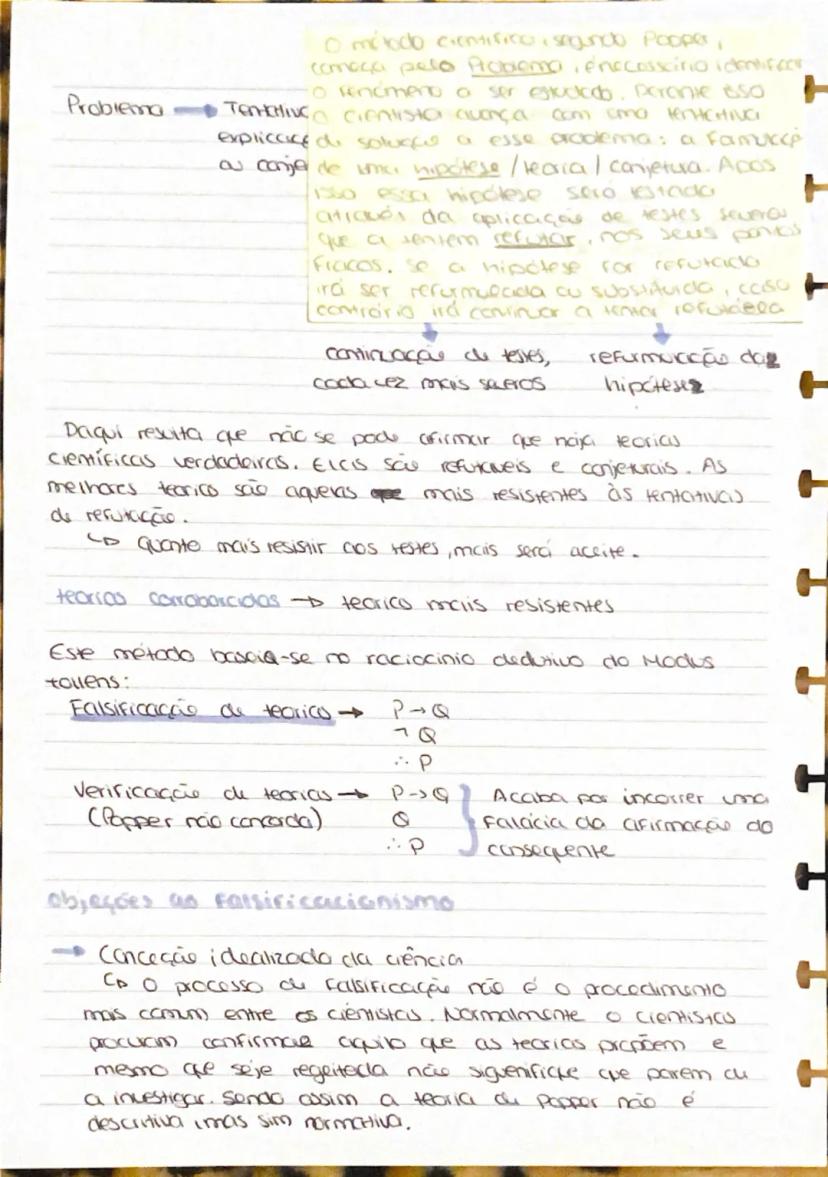 O método científico, segundo Popper,
começa pelo Problema, é necessário identificar
o fenómeno a ser estudado. Perante isso
o cientista avança com uma tentativa
de solução a esse problema: a formulaçã
de uma hipótese / teoria / conjetura. Apos
isso essa hipótese será testada
através da aplicação de testes severos
que a tentem refutar, nos seus pontos
fracos. Se a hipótese for refutada
irá ser refurmulada ou substituida, caso
contrário irá continuar a tentar refutá-la
Problema → Tentativa
explicaç
ou conje
continuação de testes, refurmulação das
cada vez mais severos hipóteses
Daqui resulta que não se pode afirmar que haja teorias
científicas verdadeiras. Elas são refutáveis e conjeturais. As
melhores teorias são aquelas mais resistentes às tentativas
de refutação.
↳ Quanto mais resistir aos testes, mais será aceite.
teorias corroboradas → teorias mais resistentes
Este método baseia-se no raciocínio dedutivo do Modus
tollens:
Falsificação de teorias → P → Q
¬ Q
∴ P
Verificação de teorias → P → Q Acaba por incorrer uma
(Popper não concorda) Q falácia da afirmação do
∴ P consequente
Objeções ao falsificacionismo
→ Conceção idealizada da ciência
↳ O processo de falsificação não é o procedimento
mais comum entre os ciêntistas. Normalmente o cientistas
procuram confirmar aquilo que as teorias propõem e
mesmo que seje regeitada não siguenifique que parem de
a investigar. Sendo assim a teoria de Popper não é
descritiva, mas sim normativa.